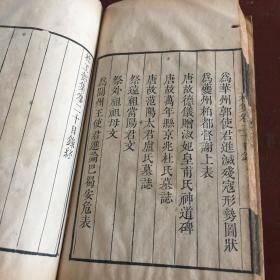 為華州郭使君進滅殘冦形勢圖狀
為夔州柏都督謝上表
唐故德儀贈淑妃皇甫氏神道碑
唐故萬年縣京兆杜氏墓誌
唐故范陽太君盧氏墓誌
祭遠祖當陽君文
祭外祖祖母文
為閬州王使君進論巴蜀安危表
集卷二十目錄終